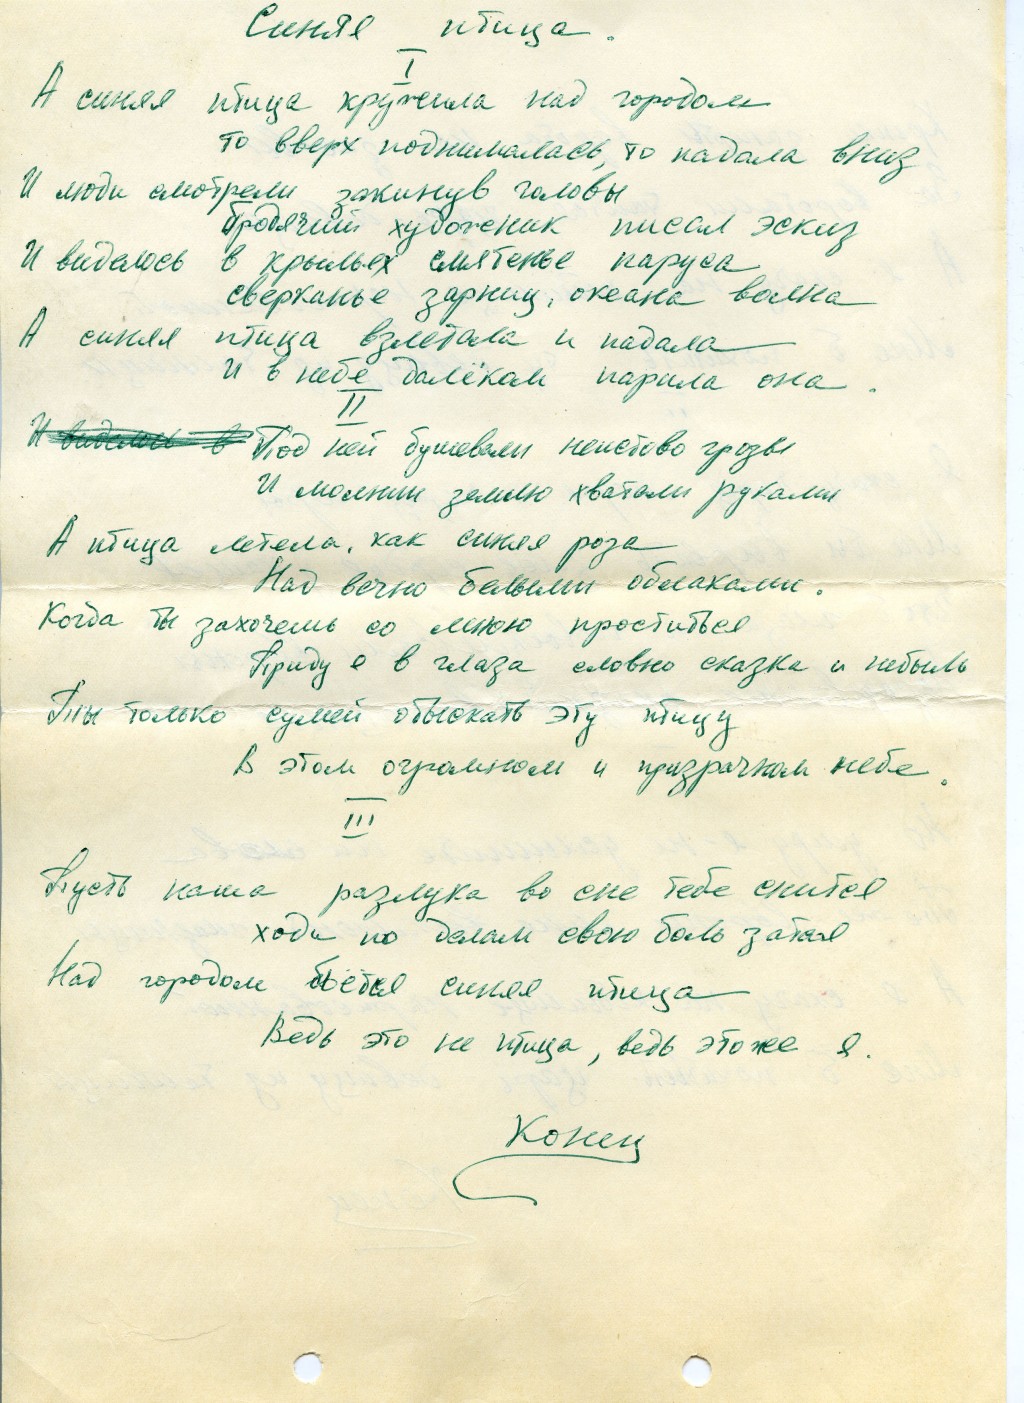 Синяя птица.
I
А синяя птица кружила над городом
то вверх поднималась, то падала вниз
И люди смотрели закинув головы
Бродячий художник писал эскиз
И виделось в крыльях смятенье паруса
сверканье зарниц, океана волна
А синяя птица взлетала и падала
И в небе далёком парила она.
II
И виделось в Под ней бушевали неистово грозы
И молнии землю хватали руками
А птица летела, как синяя роза
Над вечно белыми облаками.
Когда ты захочешь со мною проститься
Приду я в глаза словно сказка и небыль
Ты только сумей отыскать эту птицу
В этом огромном и призрачном небе.
III
Пусть наша разлука во сне тебе снится
ходи по делам свою боль затая
Над городом бьётся синяя птица
Ведь это не птица, ведь этоже я.
Конец